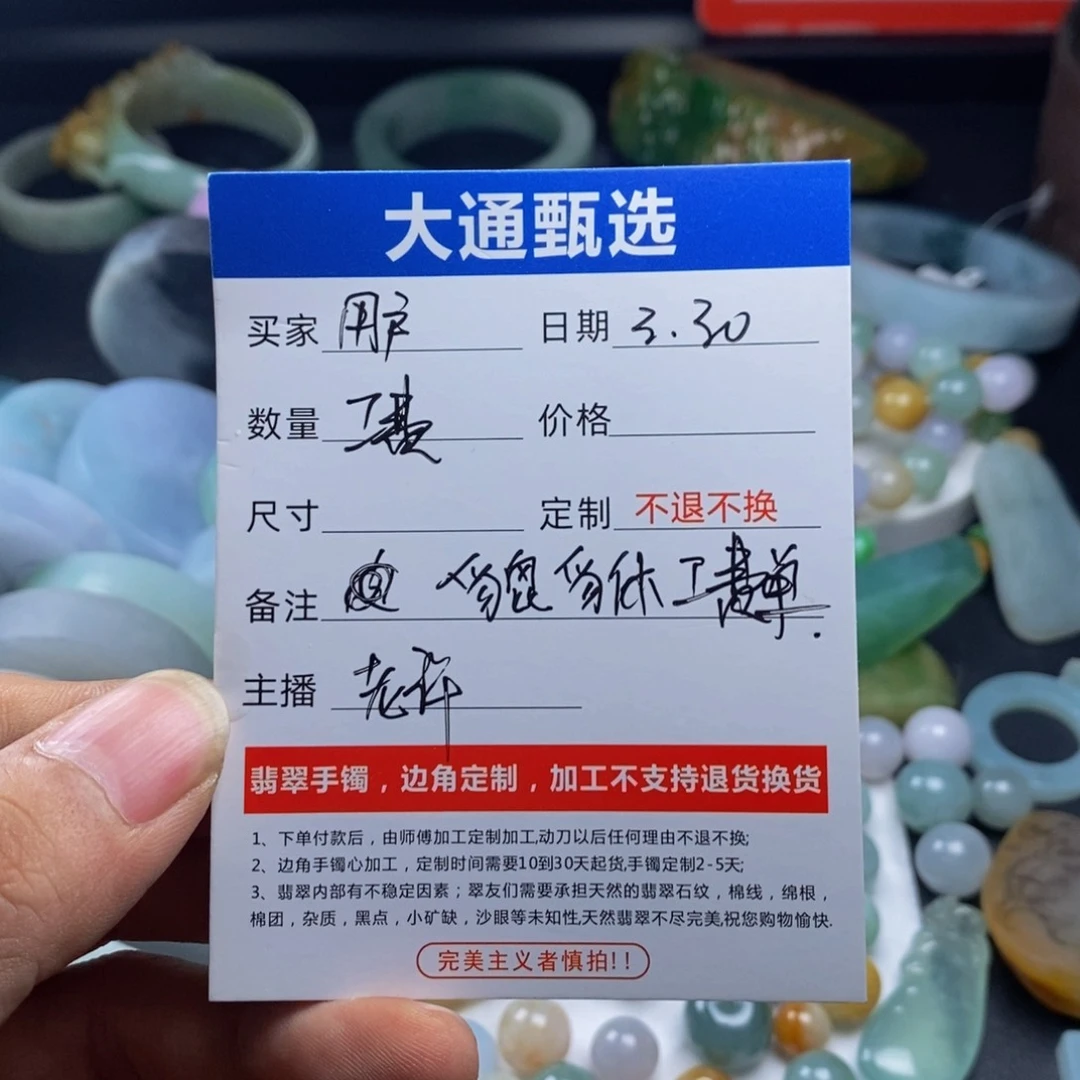 大通甄选
买家 用户 日期 3.30
数量 价格
尺寸 定制 不退不换
备注
主播 老许
翡翠手镯，边角定制，加工不支持退货换货
1、下单付款后，由师傅加工定制加工,动刀以后任何理由不退不换;
2、边角手镯心加工，定制时间需要10到30天起货,手镯定制2-5天;
3、翡翠内部有不稳定因素；翠友们需要承担天然的翡翠石纹，棉线，绵根，
棉团，杂质，黑点，小矿缺，沙眼等未知性,天然翡翠不尽完美,祝您购物愉快.
完美主义者慎拍!!